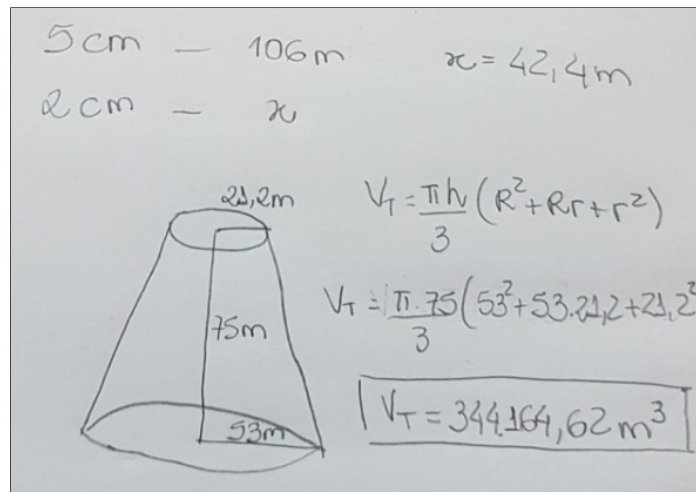 5cm — 106m
2cm — x
x = 42,4m
21,2m
75m
53m
V_T = πh/3 (R² + Rr + r²)
V_T = π.75/3 (53² + 53.21,2 + 21,2²
V_T = 344.164,62 m³